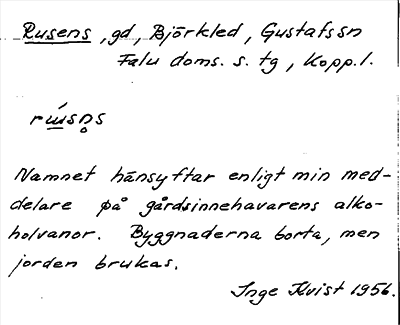 Rusens, gd, Björkled, Gustafs sn
Falu doms. s. tg, Kopp. l.
rɯ́sn̥s
Namnet hänsyftar enligt min med-
delare på gårdsinnehavarens alko-
holvanor. Byggnaderna borta, men
jorden brukas.
Inge Kvist 1956.